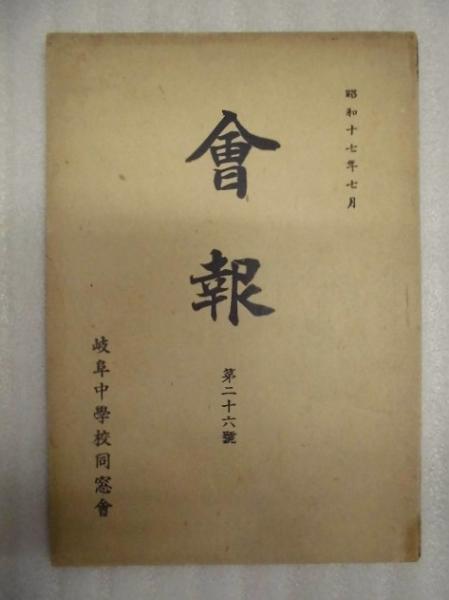 昭和十七年七月
會報
第二十六號
岐阜中學校同窓會